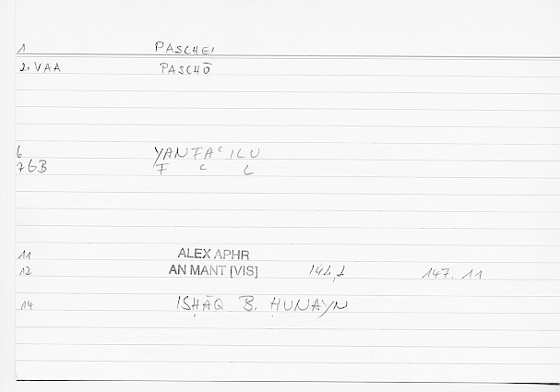 1 PASCHEI
2. VAA PASCHŌ
6 YANFAʿILU
7 GB F ʿ L
11 ALEX APHR
12 AN MANT [VIS] 147. 11
14 ISḤĀQ B. ḤUNAYN